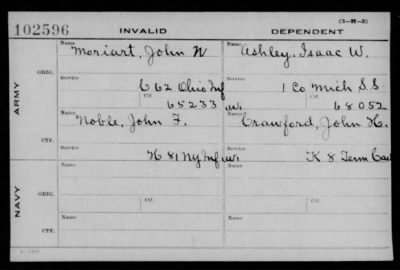 (3-H-5)
102596 INVALID DEPENDENT
Name Name
Moriart, John W Ashley, Isaac W.
ARMY
ORIG.
Service Service
C 62 Ohio Inf 1 Co Mich S.S.
Ctf. Ctf.
65233 68052
Name Name
Noble, John F. Crawford, John H.
CTF.
Service Service
H 81 NY Inf K 8 Tenn Cav
NAVY
ORIG.
Name Name
Ctf. Ctf.
CTF.
Name Name